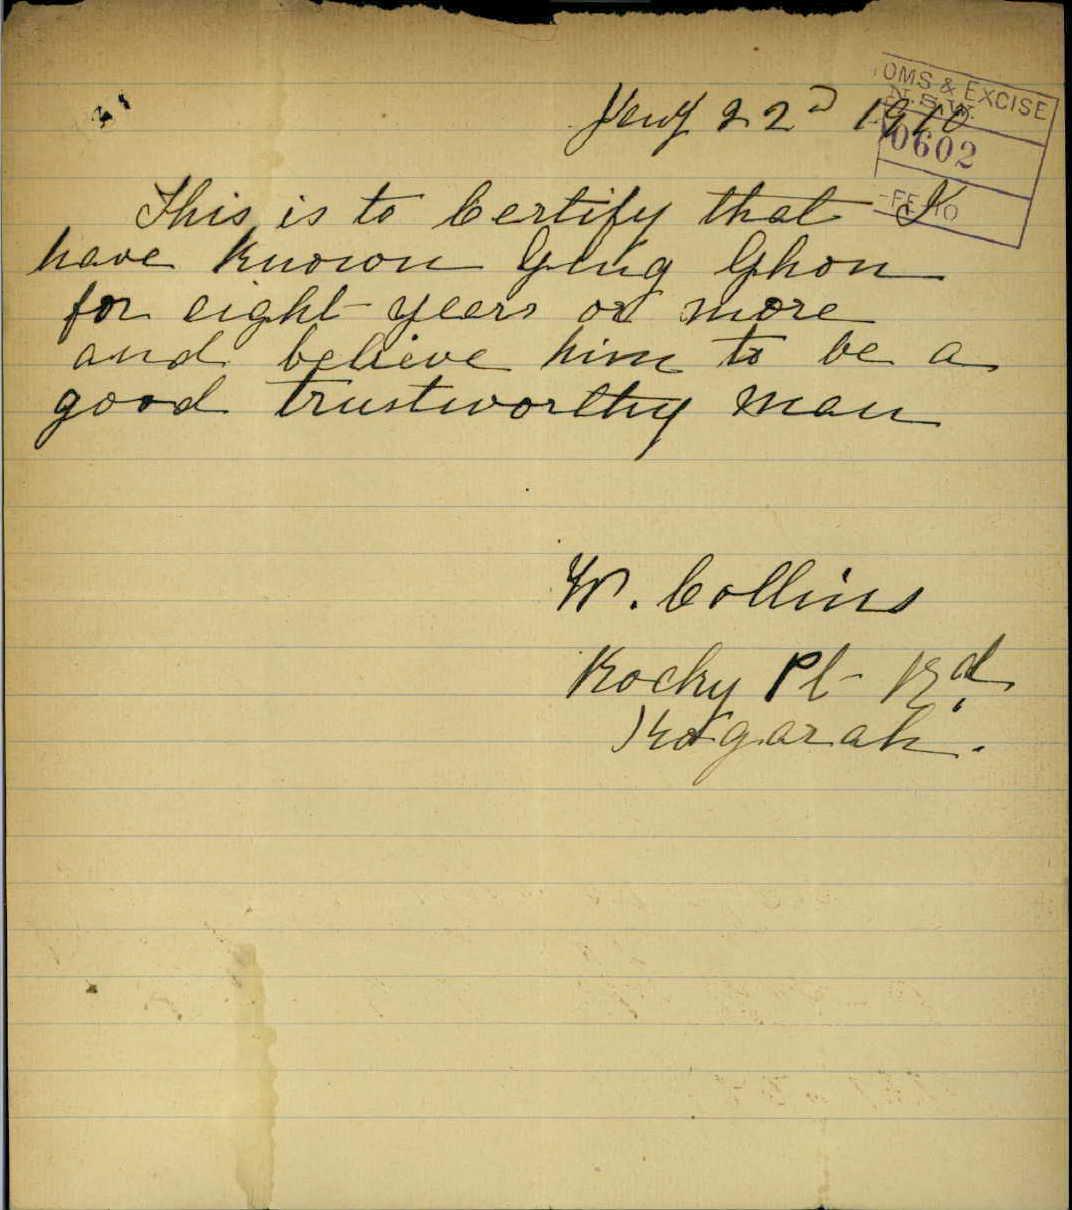 Jany 22nd 1910
OMS & EXCISE
N.S.W.
10602
-FE 10
This is to Certify that I
have known Ging Ghon
for eight years or more
and believe him to be a
good trustworthy man
W. Collins
Rocky Pt Rd.
Kogarah.